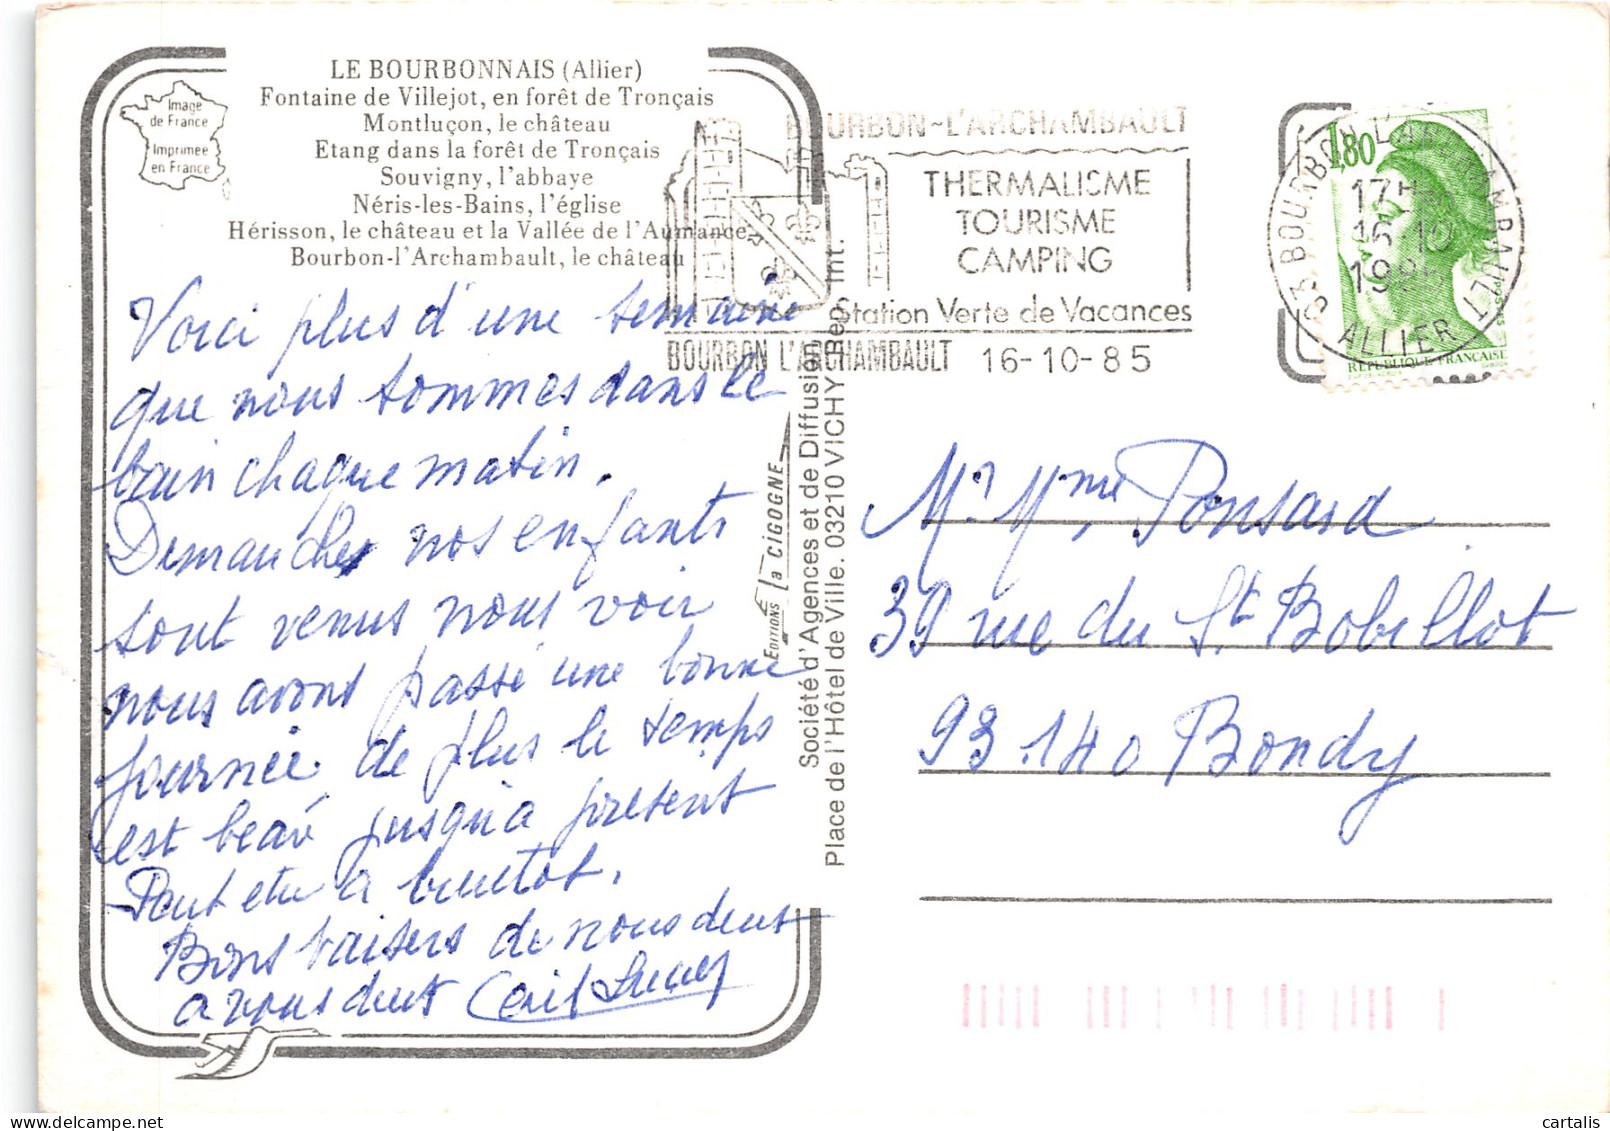 LE BOURBONNAIS (Allier)
Fontaine de Villejot, en forêt de Tronçais
Montluçon, le château
Etang dans la forêt de Tronçais
Souvigny, l'abbaye
Néris-les-Bains, l'église
Hérisson, le château et la Vallée de l'Aumance
Bourbon-l'Archambault, le château
Image
de France
Imprimée
en France
Voici plus d'une semaine
que nous sommes dans le
bain chaque matin.
Dimanche nos enfants
sont venus nous voir
nous avons passé une bonne
journée. de plus le temps
est beau jusqu'a present
Peut etre a bientot.
Bons baisers de nous deux
a vous deux
EDITIONS la CIGOGNE
Société d'Agences et de Diffusion
Place de l'Hôtel de Ville. 03210 VICHY Rep. Int.
BOURBON-L'ARCHAMBAULT
THERMALISME
TOURISME
CAMPING
Station Verte de Vacances
BOURBON L'ARCHAMBAULT 16-10-85
1,80
REPUBLIQUE FRANCAISE
03 BOURBON L'ARCHAMBAULT
17H
16-10
1985
ALLIER
Mr Mme Ponsard
39 rue du St Bobillot
93.140 Bondy
cartalis